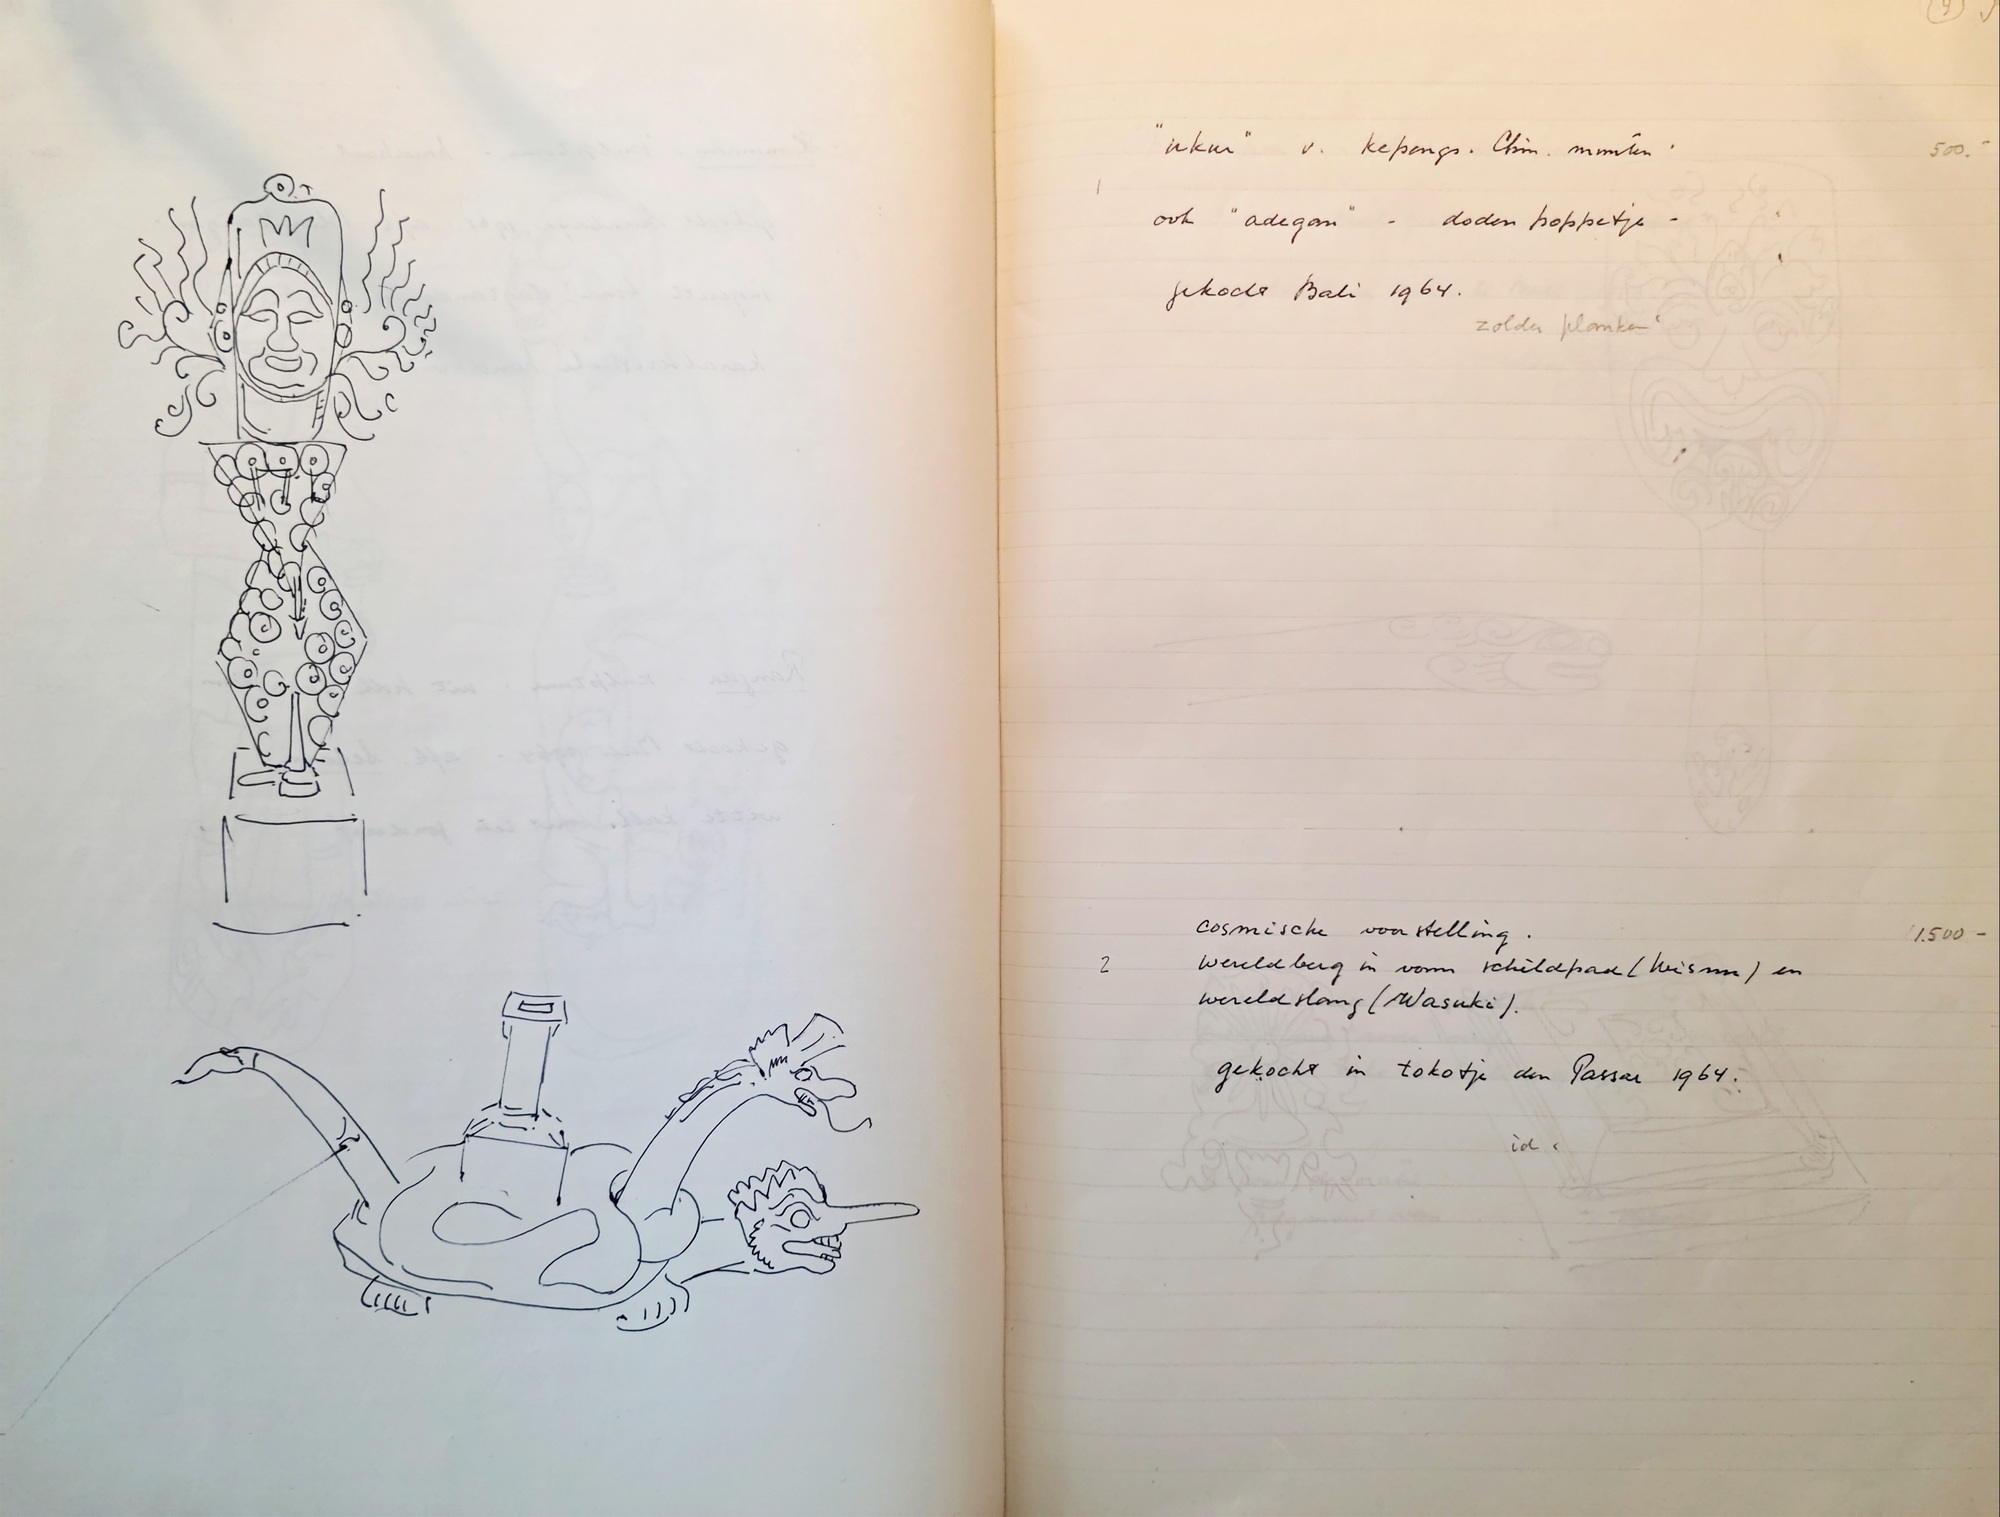 4
"ukur" v. kepengs. Chin. munten.
500.-
1
ook "adegan" - doden poppetje -
gekocht Bali 1964.
zolder planken.
cosmische voorstelling.
1.500 -
2
wereldberg in vorm schildpad (Wisnu) en
wereldslang (Wasuki).
gekocht in tokotje den Passar 1964.
id.